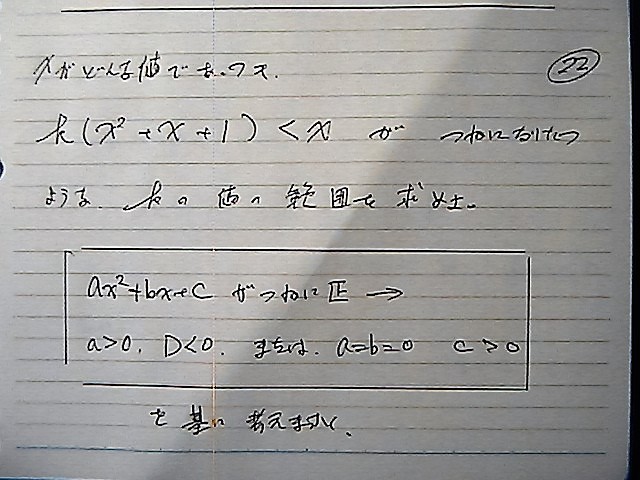 xがどんな値であっても
22
k(x²+x+1)<x が つねになりたつ
ような kの値の範囲を求めよ。
ax²+bx+c がつねに正 →
a>0. D<0. または. a=b=0 c>0
を基に考えますと、